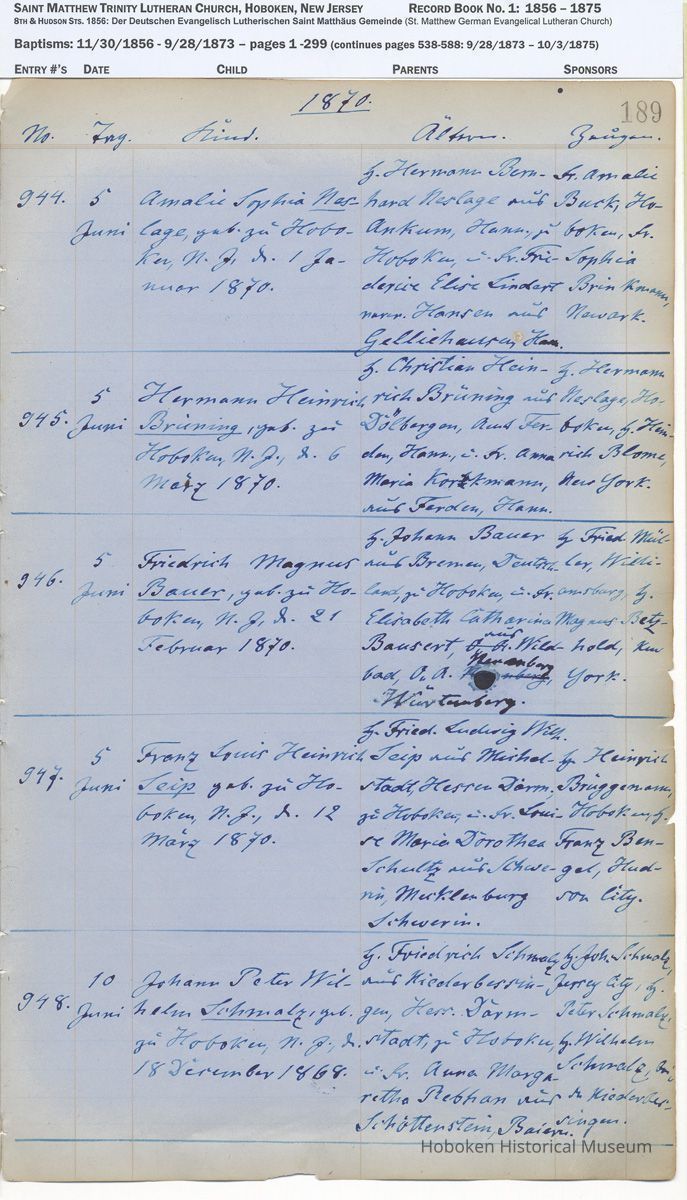 SAINT MATTHEW TRINITY LUTHERAN CHURCH, HOBOKEN, NEW JERSEY RECORD BOOK NO. 1: 1856 – 1875
8TH & HUDSON STS. 1856: Der Deutschen Evangelisch Lutherischen Saint Matthäus Gemeinde (St. Matthew German Evangelical Lutheran Church)
Baptisms: 11/30/1856 - 9/28/1873 – pages 1 -299 (continues pages 538-588: 9/28/1873 – 10/3/1875)
ENTRY #'S DATE CHILD PARENTS SPONSORS
1870.
189
No. Tag. Kind. Ältern. Zeugen.
944.
5
Juni
Amalie Sophia Nes-
lage, geb. zu Hobo-
ken, N. J., d. 1 Ja-
nuar 1870.
H. Hermann Bern-
hard Neslage aus
Ankum, Hann., zu
Hoboken, u. Fr. Frie-
derice Elise Lindart
verw. Hansen aus
Gelliehausen, Han.
Fr. Amalie
Buck, Ho-
boken, Fr.
Sophia
Brinkmann,
Newark.
945.
5
Juni
Hermann Heinrich
Brüning, geb. zu
Hoboken, N. J., d. 6
März 1870.
H. Christian Hein-
rich Brüning aus
Dölbergen, Amt Fer-
den, Hann., u. Fr. Anna
Maria Korkmann,
aus Ferden, Hann.
H. Hermann
Neslage, Ho-
boken, H. Hein-
rich Blome,
New York.
946.
5
Juni
Friedrich Magnus
Bauer, geb. zu Ho-
boken, N. J., d. 21
Februar 1870.
H. Johann Bauer
aus Bremen, Deutsch-
land, zu Hoboken, u. Fr.
Elisabeth Catharina
Bausert, aus Wild-
bad, O. A. Neuenberg
Würtemberg.
H. Fried. Mül-
ler, Willi-
amsburg, H.
Magnus Betz-
hold, New
York.
947.
5
Juni
Franz Louis Heinrich
Seip geb. zu Ho-
boken, N. J., d. 12
März 1870.
H. Fried. Ludwig Wilh.
Seip aus Michel-
stadt, Hessen Darm.,
zu Hoboken, u. Fr. Loui-
se Maria Dorothea
Schultz aus Schwe-
rin, Mecklenburg
Schwerin.
H. Heinrich
Brüggemann,
Hoboken, H.
Franz Ben-
gel, Hud-
son City.
948.
10
Juni
Johann Peter Wil-
helm Schmalz, geb.
zu Hoboken, N. J., d.
18 December 1868.
H. Friedrich Schmalz
aus Niederbessin-
gen, Hess. Darm-
stadt, zu Hoboken,
u. Fr. Anna Marga-
retha Rebhan aus
Schottenstein, Baiern.
H. Joh. Schmalz,
Jersey City, H.
Peter Schmalz,
H. Wilhelm
Schmalz,
zu Niederbes-
singen.
Hoboken Historical Museum